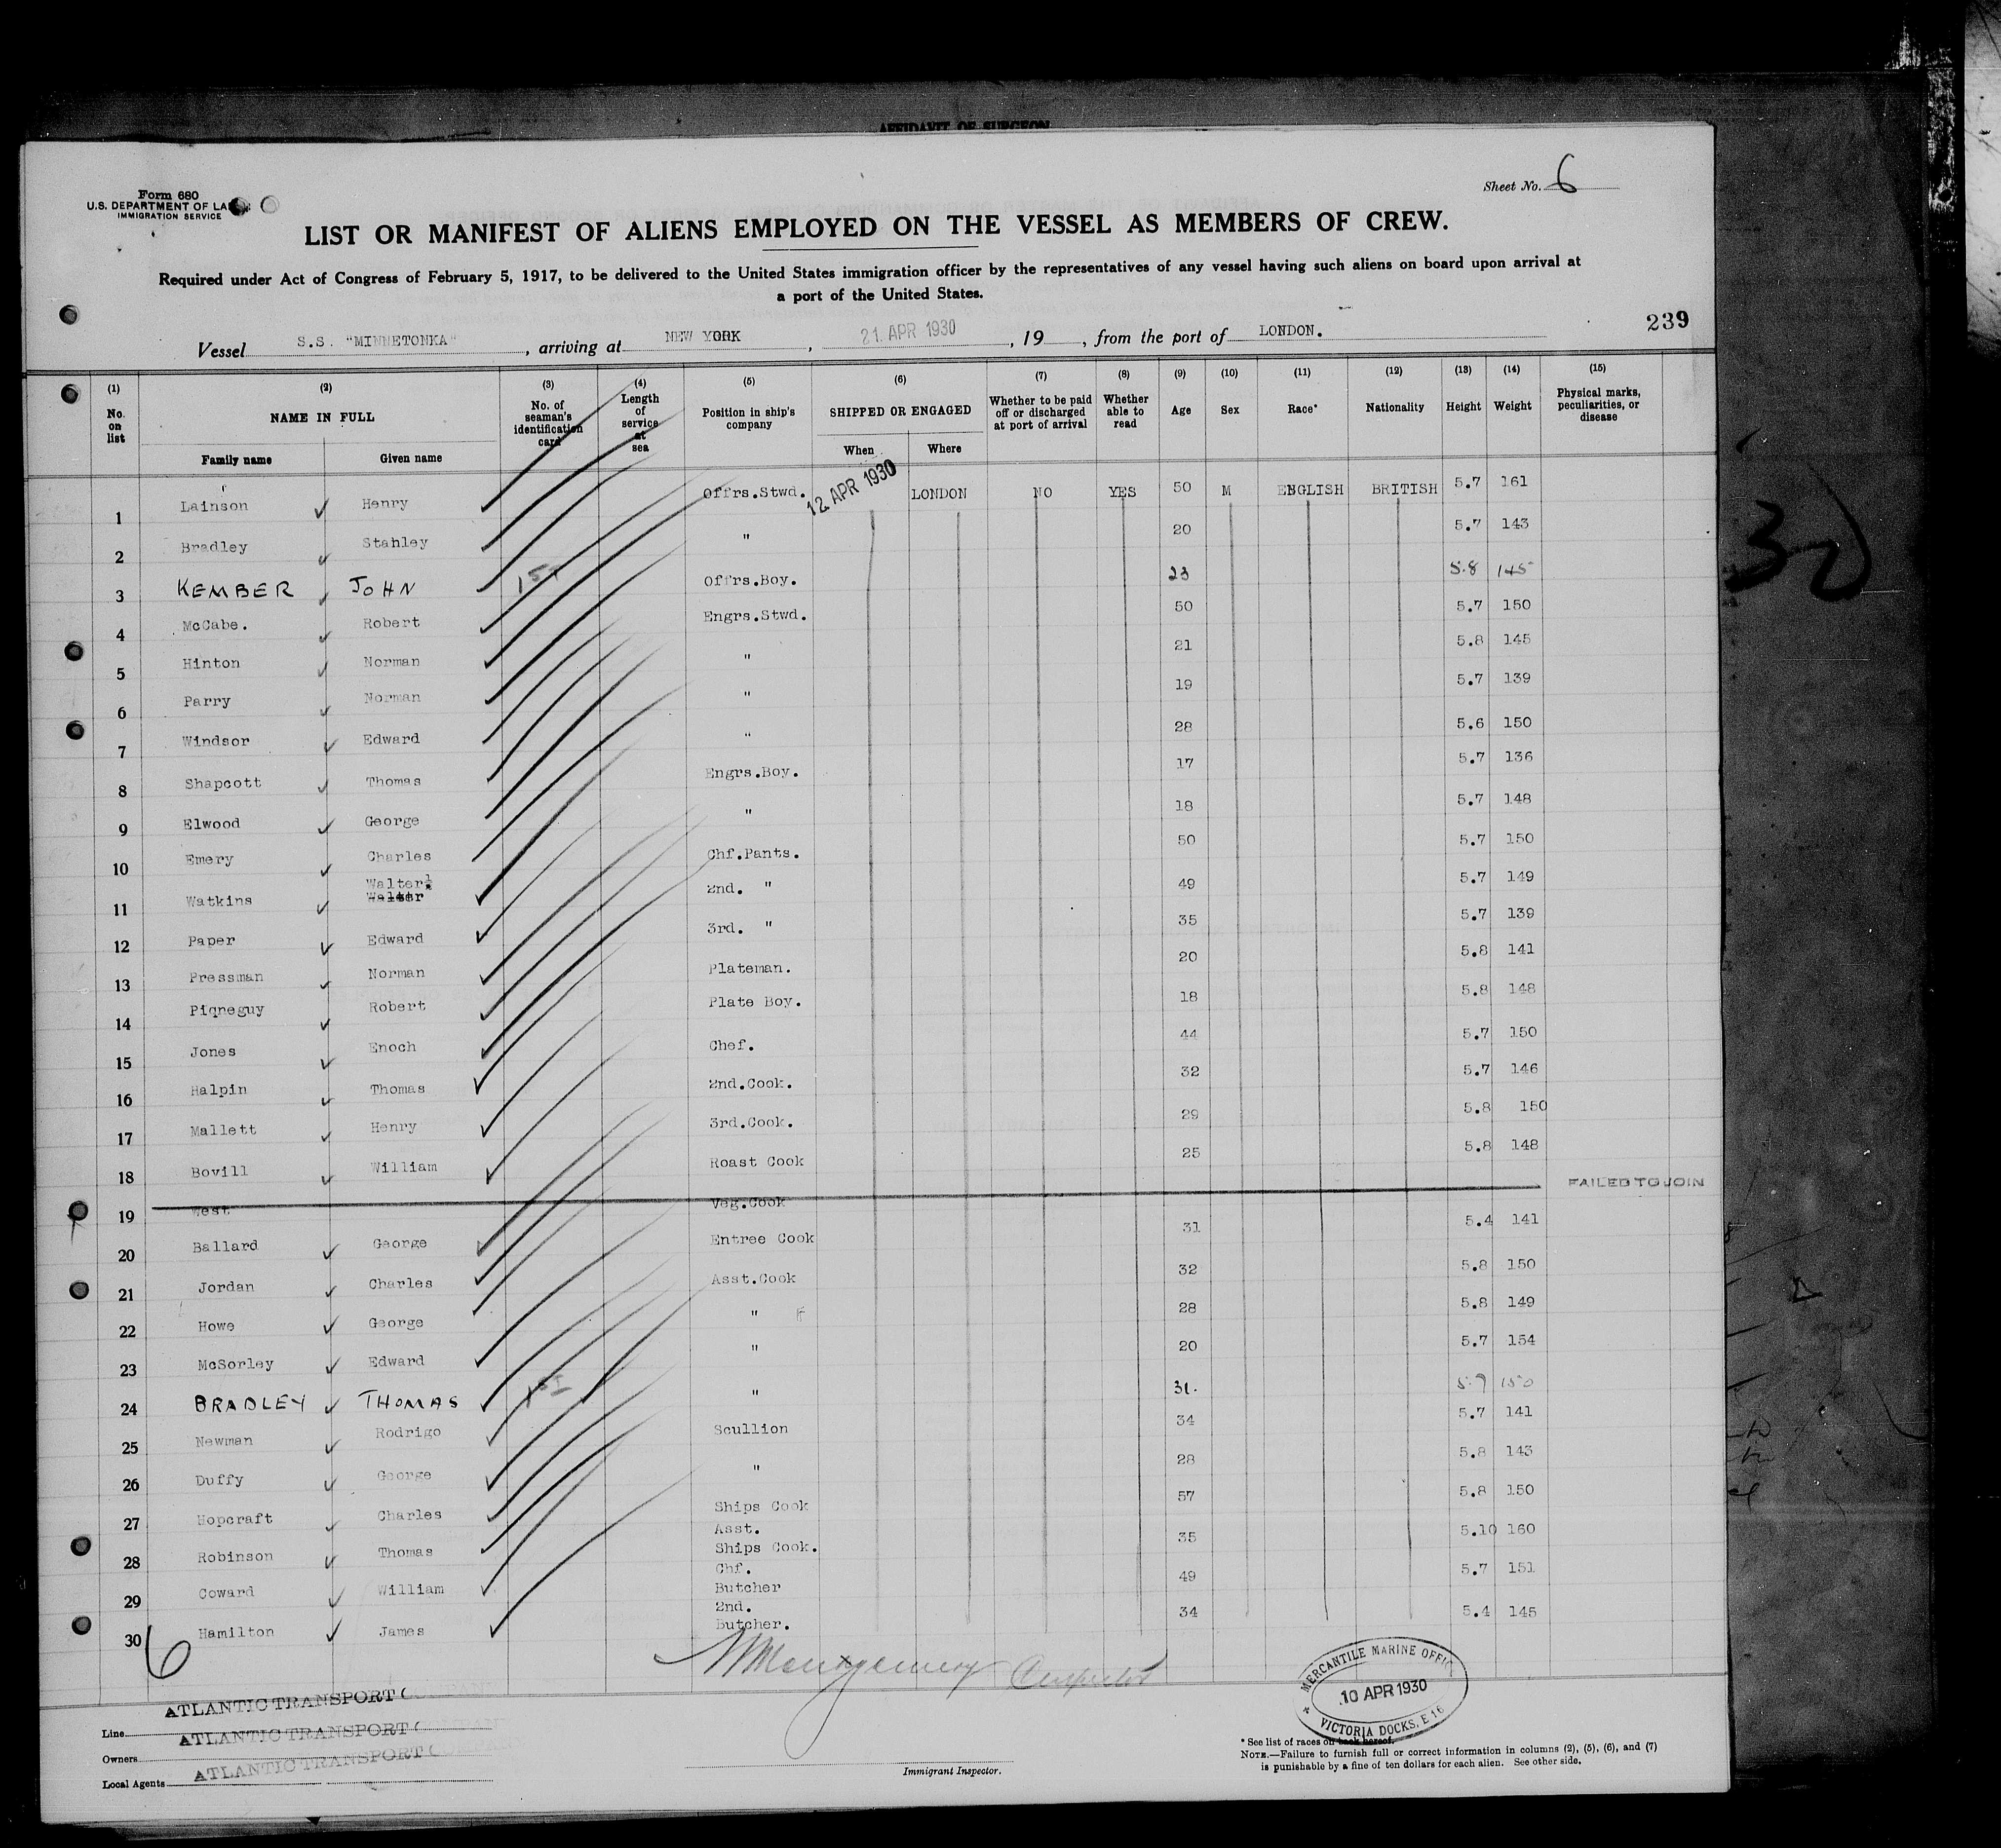 AFFIDAVIT OF SURGEON
Form 680
U.S. DEPARTMENT OF LA
IMMIGRATION SERVICE
Sheet No. 6
LIST OR MANIFEST OF ALIENS EMPLOYED ON THE VESSEL AS MEMBERS OF CREW.
Required under Act of Congress of February 5, 1917, to be delivered to the United States immigration officer by the representatives of any vessel having such aliens on board upon arrival at
a port of the United States.
239
Vessel S.S. "MINNETONKA", arriving at NEW YORK, 21. APR 1930, 19 , from the port of LONDON.
(1) (2) (3) (4) (5) (6) (7) (8) (9) (10) (11) (12) (13) (14) (15)
No. on list NAME IN FULL No. of seaman's identification card Length of service at sea Position in ship's company SHIPPED OR ENGAGED Whether to be paid off or discharged at port of arrival Whether able to read Age Sex Race* Nationality Height Weight Physical marks, peculiarities, or disease
Family name Given name When Where
1 Lainson Henry Offrs.Stwd. 12 APR 1930 LONDON NO YES 50 M ENGLISH BRITISH 5.7 161
2 Bradley Stahley " 20 5.7 143
3 KEMBER JOHN 1ST Offrs.Boy. 23 5.8 145
4 McCabe. Robert Engrs.Stwd. 50 5.7 150
5 Hinton Norman " 21 5.8 145
6 Parry Norman " 19 5.7 139
7 Windsor Edward " 28 5.6 150
8 Shapcott Thomas Engrs.Boy. 17 5.7 136
9 Elwood George " 18 5.7 148
10 Emery Charles Chf.Pants. 50 5.7 150
Walter
11 Watkins Walter 2nd. " 49 5.7 149
12 Paper Edward 3rd. " 35 5.7 139
13 Pressman Norman Plateman. 20 5.8 141
14 Piqneguy Robert Plate Boy. 18 5.8 148
15 Jones Enoch Chef. 44 5.7 150
16 Halpin Thomas 2nd.Cook. 32 5.7 146
17 Mallett Henry 3rd.Cook. 29 5.8 150
18 Bovill William Roast Cook 25 5.8 148
19 West Veg.Cook FAILED TO JOIN
20 Ballard George Entree Cook 31 5.4 141
21 Jordan Charles Asst.Cook 32 5.8 150
22 Howe George " 28 5.8 149
23 McSorley Edward " 20 5.7 154
24 BRADLEY THOMAS 1ST " 31. 5.7 150
25 Newman Rodrigo Scullion 34 5.7 141
26 Duffy George " 28 5.8 143
27 Hopcraft Charles Ships Cook 57 5.8 150
28 Robinson Thomas Asst. Ships Cook. 35 5.10 160
29 Coward William Chf. Butcher 49 5.7 151
30 Hamilton James 2nd. Butcher. 34 5.4 145
6
MERCANTILE MARINE OFFIC
10 APR 1930
VICTORIA DOCKS, E 16
Line ATLANTIC TRANSPORT COMPANY
Owners ATLANTIC TRANSPORT COMPANY
Local Agents ATLANTIC TRANSPORT COMPANY
Immigrant Inspector.
* See list of races on back hereof.
NOTE.—Failure to furnish full or correct information in columns (2), (5), (6), and (7)
is punishable by a fine of ten dollars for each alien. See other side.